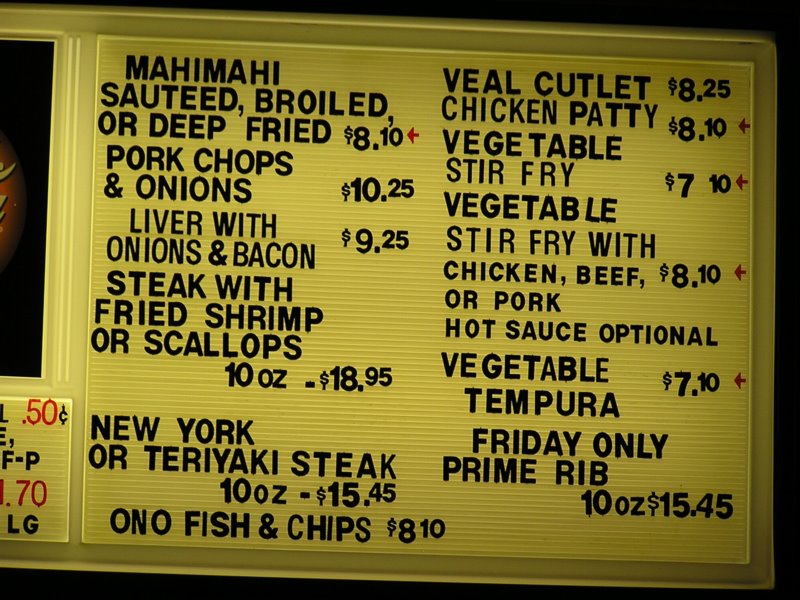 MAHIMAHI
SAUTEED, BROILED,
OR DEEP FRIED $8.10
PORK CHOPS
& ONIONS $10.25
LIVER WITH
ONIONS & BACON $9.25
STEAK WITH
FRIED SHRIMP
OR SCALLOPS
10 oz - $18.95
NEW YORK
OR TERIYAKI STEAK
10 oz - $15.45
ONO FISH & CHIPS $8 10
VEAL CUTLET $8.25
CHICKEN PATTY $8.10
VEGETABLE
STIR FRY $7 10
VEGETABLE
STIR FRY WITH
CHICKEN, BEEF, $8.10
OR PORK
HOT SAUCE OPTIONAL
VEGETABLE $7.10
TEMPURA
FRIDAY ONLY
PRIME RIB
10 oz $15.45
.50¢
F-P
1.70
LG